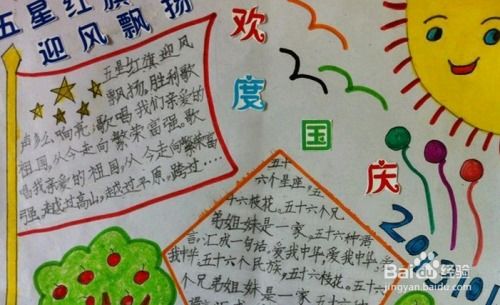 五星红旗
迎风飘扬
五星红旗迎风
飘扬,胜利歌
声多么响亮;歌唱我们亲爱的
祖国,从今走向繁荣富强。歌
唱我亲爱的祖国,从今走向繁荣富
强。越过高山,越过平原,跨过……
欢度国庆
五十
六个星座,五
十六枝花。五十六个兄
弟姐妹是一家,五十六种语
言,汇成一句话,爱我中华,爱我中华,爱
我中华。五十六个民族,五十六枝花。五十六
个兄弟姐妹是一家,五十
Baidu经验
jingyan.baidu.com